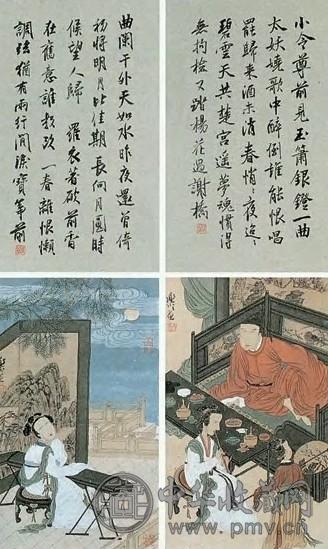 小令尊前見玉簫銀鐙一曲
太妖嬈歌中醉倒誰能恨唱
罷歸來酒未消春悄々夜迢々
碧雲天共楚宮遥夢魂慣得
無拘檢又踏楊花過謝橋
曲闌干外天如水昨夜還曾倚
初將明月比佳期長向月圓時
候望人歸 羅衣著破前香
在舊意誰教改一春離恨懶
調弦猶有兩行閒淚寶箏前
中华收藏网
www.pmv.cn